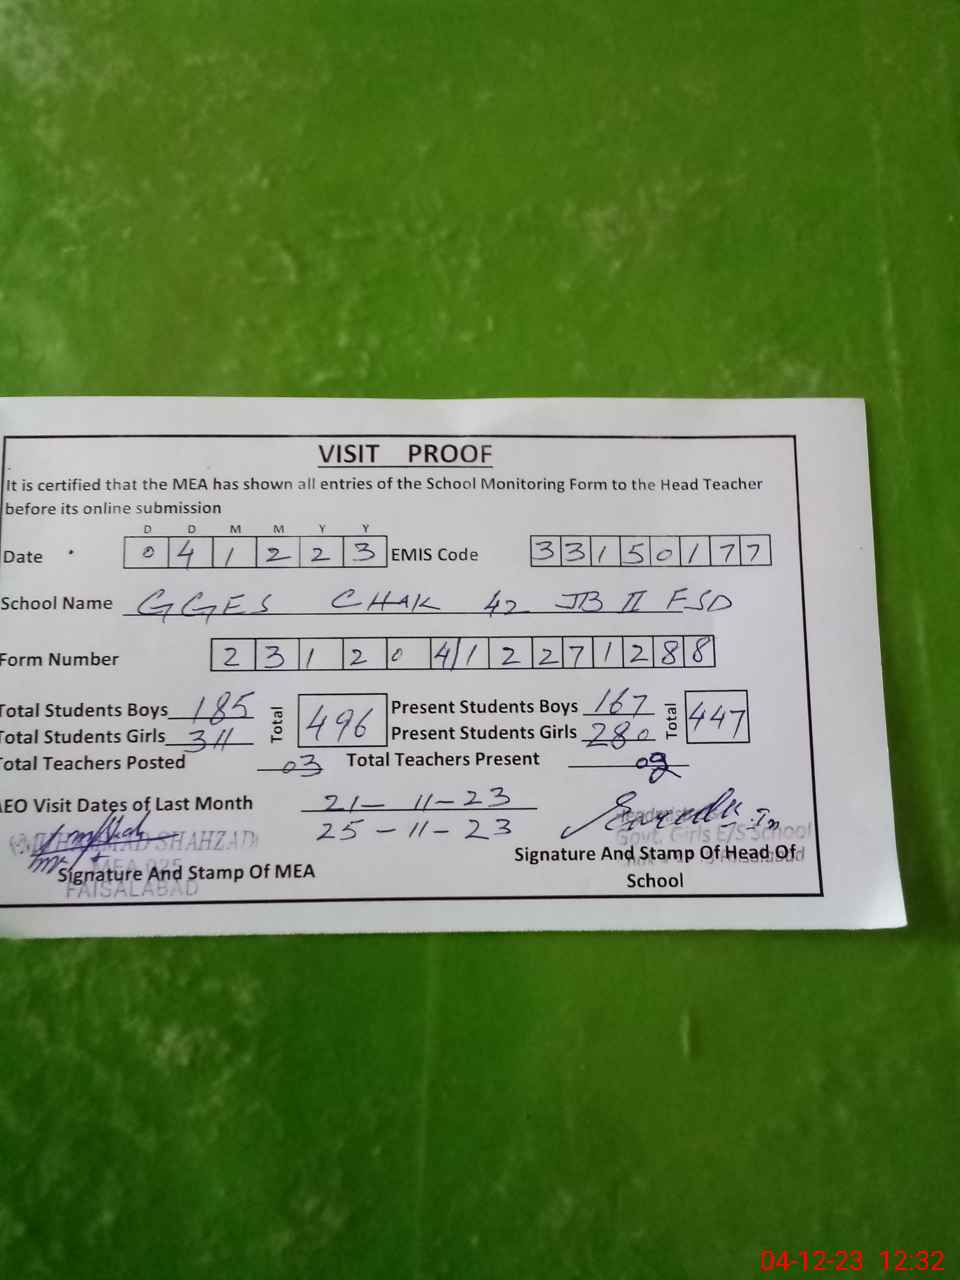 VISIT PROOF
It is certified that the MEA has shown all entries of the School Monitoring Form to the Head Teacher
before its online submission
D D M M Y Y
Date 0 4 1 2 2 3 EMIS Code 3 3 1 5 0 1 7 7
School Name GGES CHAK 42 JB II FSD
Form Number 2 3 1 2 0 4 1 2 2 7 1 2 8 8
Total Students Boys 185 Total 496 Present Students Boys 167 Total 447
Total Students Girls 311 Present Students Girls 280
Total Teachers Posted 03 Total Teachers Present
AEO Visit Dates of Last Month 21-11-23
25-11-23
SHAHZAD
Govt. Girls E/S School
Signature And Stamp Of MEA
FAISALABAD
Signature And Stamp Of Head Of
School
04-12-23 12:32